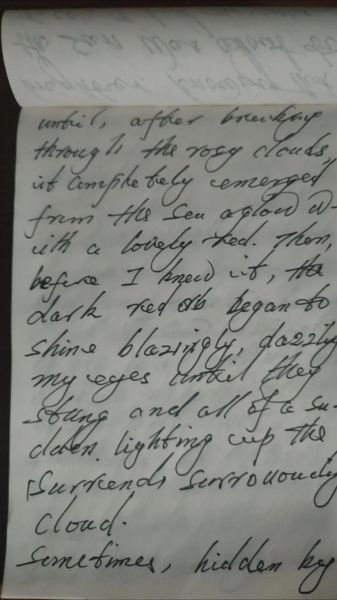 until, after breaking
through the rosy clouds,
it completely emerged
from the sea aglow w-
ith a lovely red. Then,
before I knew it, the
dark red orb began to
shine blazingly, dazzly
my eyes until they
stung and all of a su-
dden lighting up the
surrououdy
cloud.
sometimes, hidden by